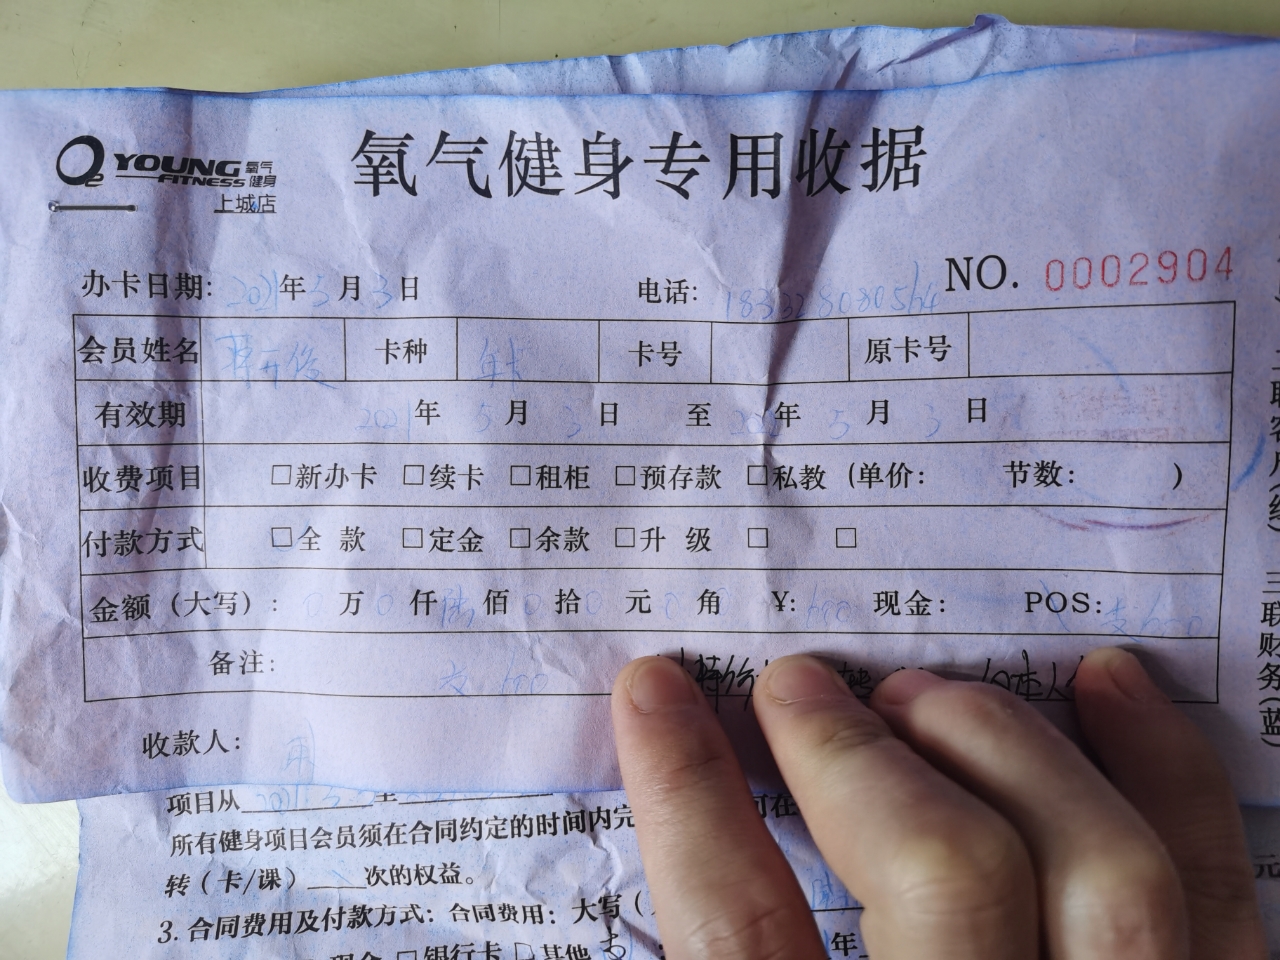 O2 YOUNG FITNESS 氧气健身
上城店
氧气健身专用收据
NO. 0002904
办卡日期: 2021年5月3日 电话: 18332808056
会员姓名 卡种 年卡 卡号 原卡号
有效期 2021年5月3日 至 年5月3日
收费项目 □新办卡 □续卡 □租柜 □预存款 □私教 (单价: 节数: )
付款方式 □全 款 □定金 □余款 □升 级 □ □
金额（大写）: 0万0仟陆佰0拾0元0角 ¥: 600 现金: POS: 支600
备注: 支 600 特价
收款人:
二联客户(红) 三联财务(蓝)
项目从 2021.5.3 至
所有健身项目会员须在合同约定的时间内完
转（卡/课）____次的权益。
3. 合同费用及付款方式: 合同费用: 大写（
现金 □银行卡 □其他 支 年
元